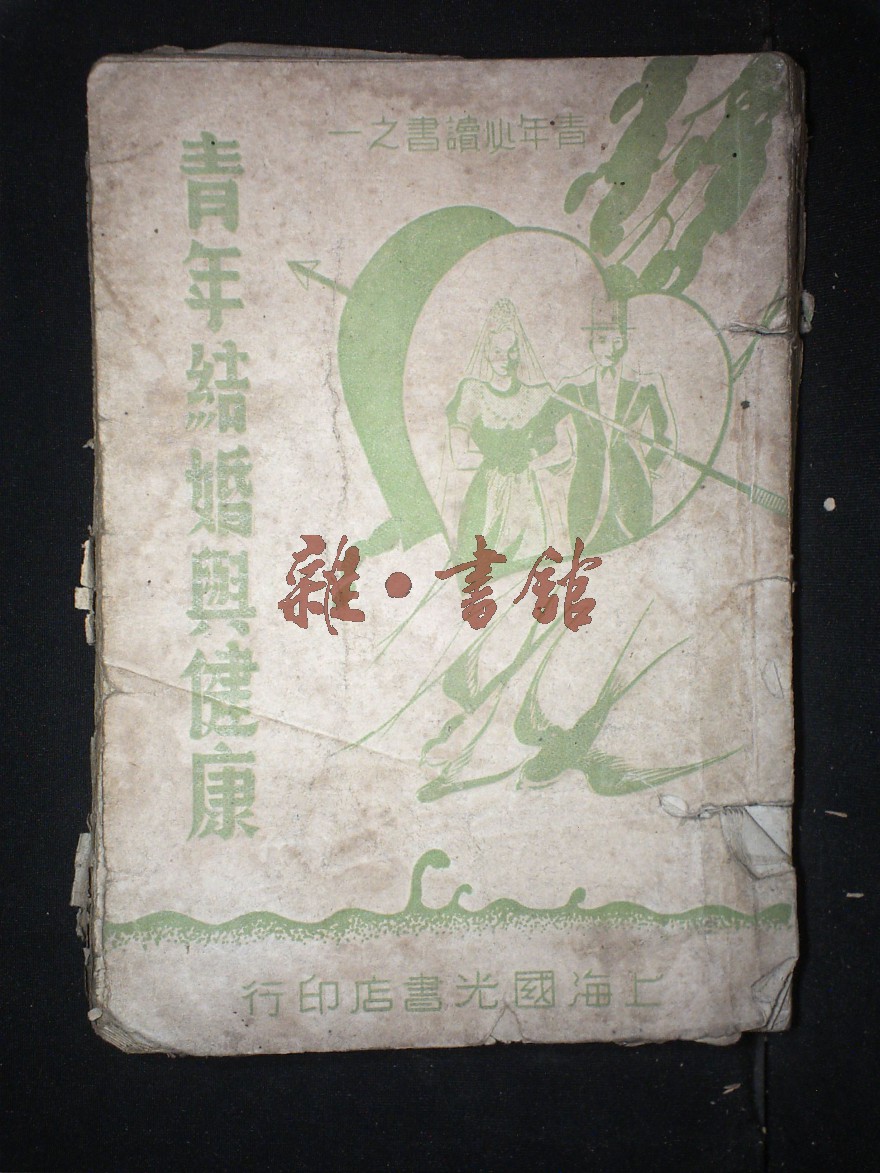 青年必讀書之一
青年結婚與健康
雜·書館
上海國光書店印行